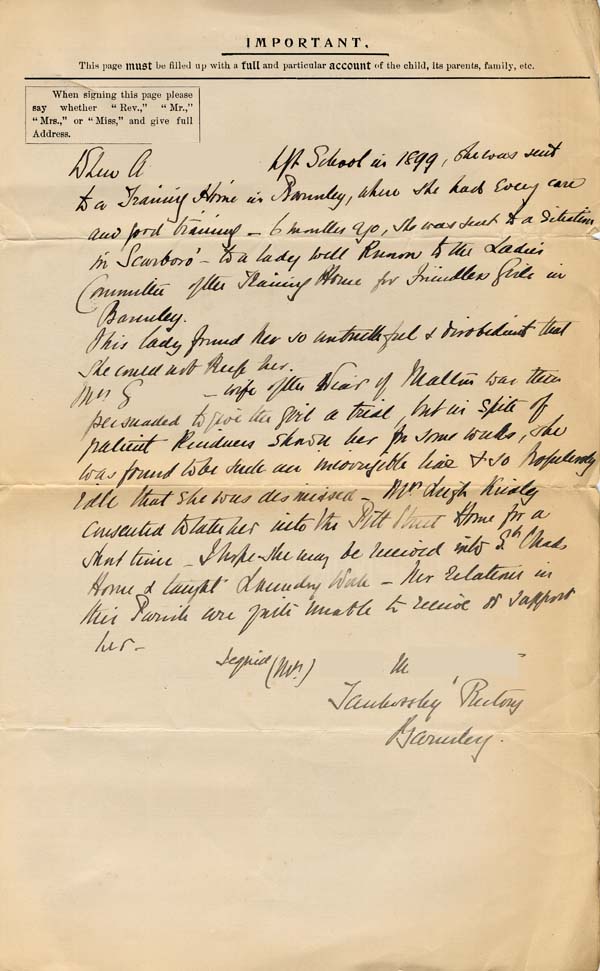 IMPORTANT.
This page must be filled up with a full and particular account of the child, its parents, family, etc.
When signing this page please
say whether "Rev.," "Mr.,"
"Mrs.," or "Miss," and give full
Address.
A left School in 1899, She was sent
to a Training Home in Barnsley, where she had every care
and good training – 6 months ago, she was sent to a situation
in Scarboro' – to a lady well known to the Ladies
Committee of the Training Home for Friendless Girls in
Barnsley.
This lady found her so untruthful & disobedient that
she could not keep her.
Mrs G – wife of the Vicar of Malton was then
persuaded to give the girl a trial, but in spite of
patient kindness shown her for some weeks, she
was found to be such an incorrigible liar & so hopelessly
idle that she was dismissed – Mrs Leigh
consented to take her into the Pitt Street Home for a
short time – I hope she may be received into St Chads
Home & taught Laundry Work – Her relations in
this Parish are quite unable to receive or support
her –
Signed (Mrs) M
Tankersley Rectory
Barnsley.